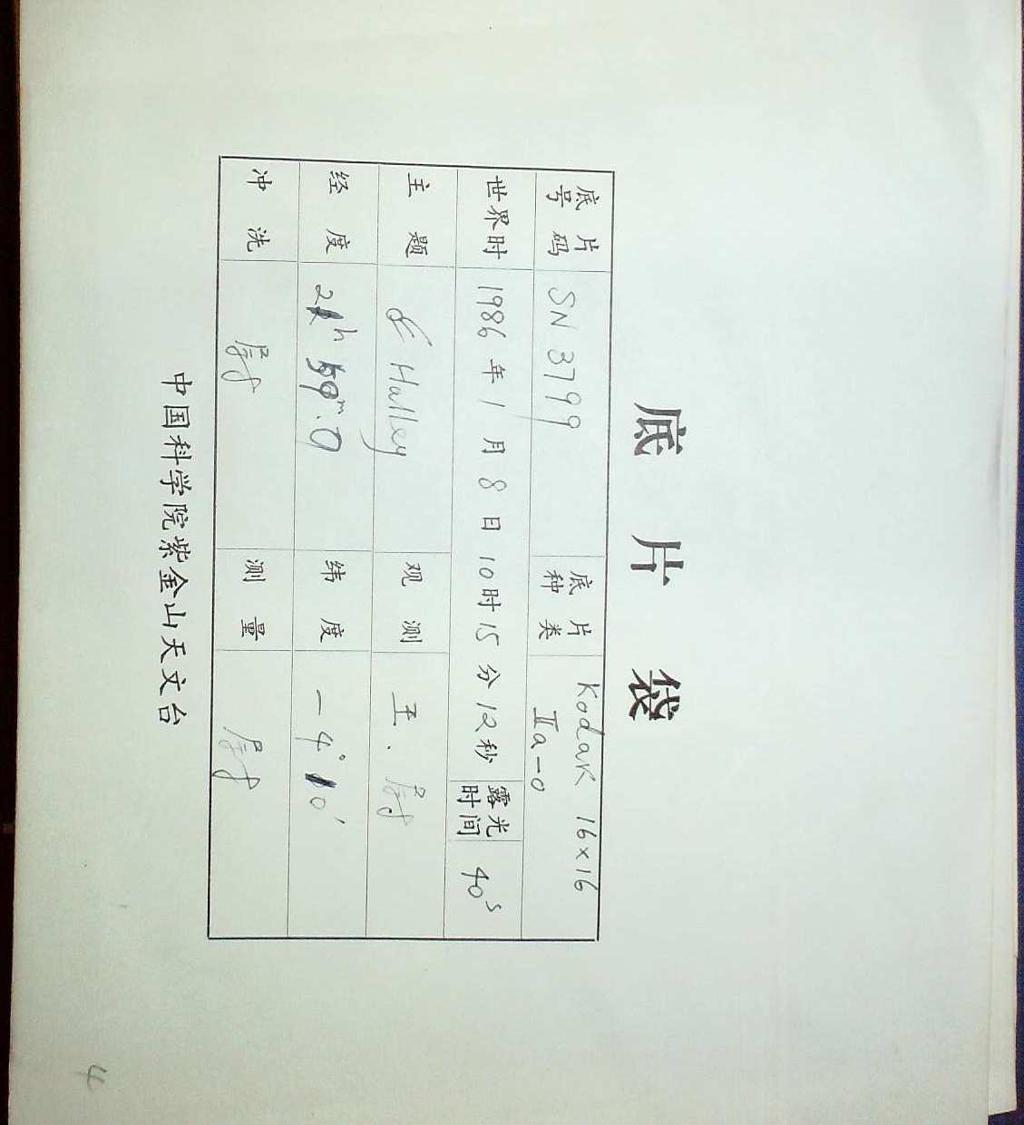 底片袋
底片号码 SN 3799 底片种类 Kodak 16×16 IIa-O
世界时 1986年1月8日10时15分12秒 露光时间 40s
主题 Halley 观测 王.
经度 纬度 -4°10′
冲洗 测量
中国科学院紫金山天文台
4